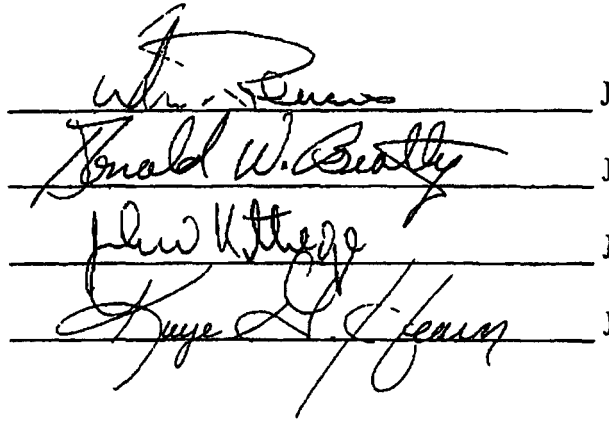 J
Donald W. Beatty J
John W Kittredge J
Kaye G. Hearn J